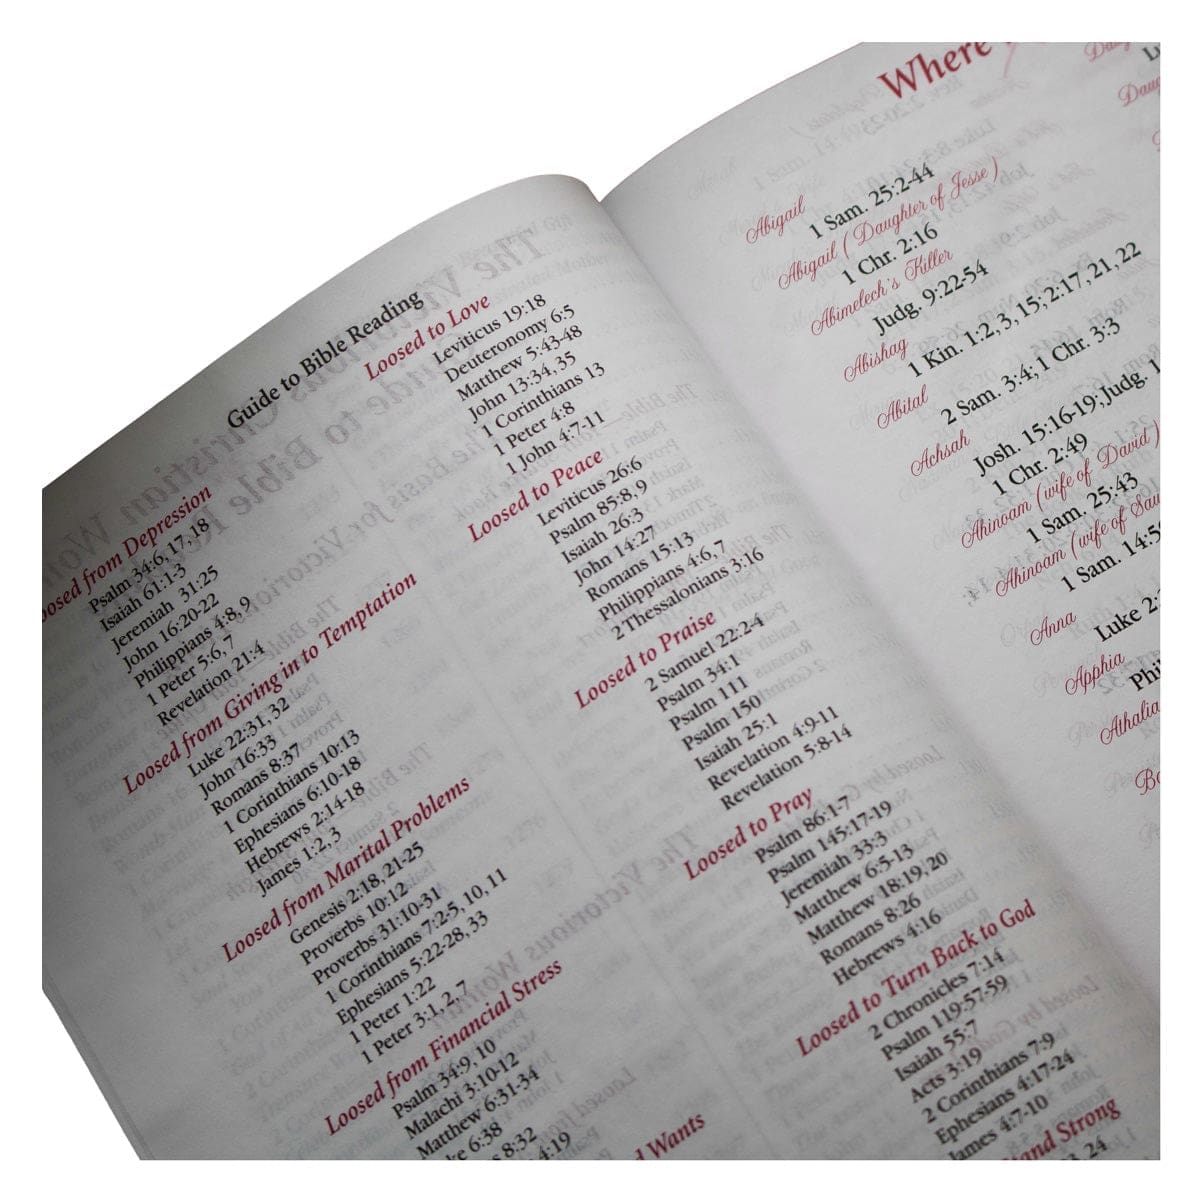 Guide to Bible Reading
oosed from Depression
Psalm 34:6, 17, 18
Isaiah 61:1-3
Jeremiah 31:25
John 16:20-22
Philippians 4:8, 9
1 Peter 5:6, 7
Revelation 21:4
Loosed from Giving in to Temptation
Luke 22:31, 32
John 16:33
Romans 8:37
1 Corinthians 10:13
Ephesians 6:10-18
Hebrews 2:14-18
James 1:2, 3
Loosed from Marital Problems
Genesis 2:18, 21-25
Proverbs 10:12
Proverbs 31:10-31
1 Corinthians 7:2-5, 10, 11
Ephesians 5:22-28, 33
1 Peter 1:22
1 Peter 3:1, 2, 7
Loosed from Financial Stress
Psalm 34:9, 10
Malachi 3:10-12
Matthew 6:31-34
ke 6:38
s 8:32
4:19
Loosed to Love
Leviticus 19:18
Deuteronomy 6:5
Matthew 5:43-48
John 13:34, 35
1 Corinthians 13
1 Peter 4:8
1 John 4:7-11
Loosed to Peace
Leviticus 26:6
Psalm 85:8, 9
Isaiah 26:3
John 14:27
Romans 15:13
Philippians 4:6, 7
2 Thessalonians 3:16
Loosed to Praise
2 Samuel 22:2-4
Psalm 34:1
Psalm 111
Psalm 150
Isaiah 25:1
Revelation 4:9-11
Revelation 5:8-14
Loosed to Pray
Psalm 86:1-7
Psalm 145:17-19
Jeremiah 33:3
Matthew 6:5-13
Matthew 18:19, 20
Romans 8:26
Hebrews 4:16
Loosed to Turn Back to God
2 Chronicles 7:14
Psalm 119:57-59
Isaiah 55:7
Acts 3:19
2 Corinthians 7:9
Ephesians 4:17-24
James 4:7-10
tand Strong
24
d Wants
Where
Abigail
1 Sam. 25:2-44
Abigail (Daughter of Jesse)
1 Chr. 2:16
Abimelech's Killer
Judg. 9:22-54
Abishag
1 Kin. 1:2, 3, 15; 2:17, 21, 22
Abital
2 Sam. 3:4; 1 Chr. 3:3
Achsah
Josh. 15:16-19; Judg. 1
1 Chr. 2:49
Ahinoam (wife of David)
1 Sam. 25:43
Ahinoam (wife of Sau
1 Sam. 14:5
Anna
Luke 2:
Apphia
Phi
Athalia